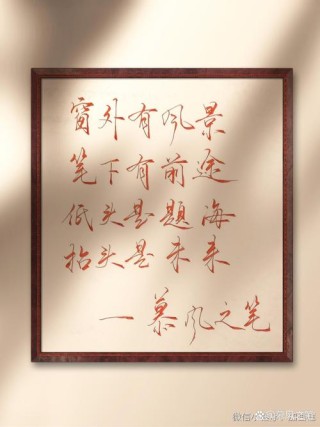 窗外有风景
笔下有前途
低头是题海
抬头是未来
一慕风之笔